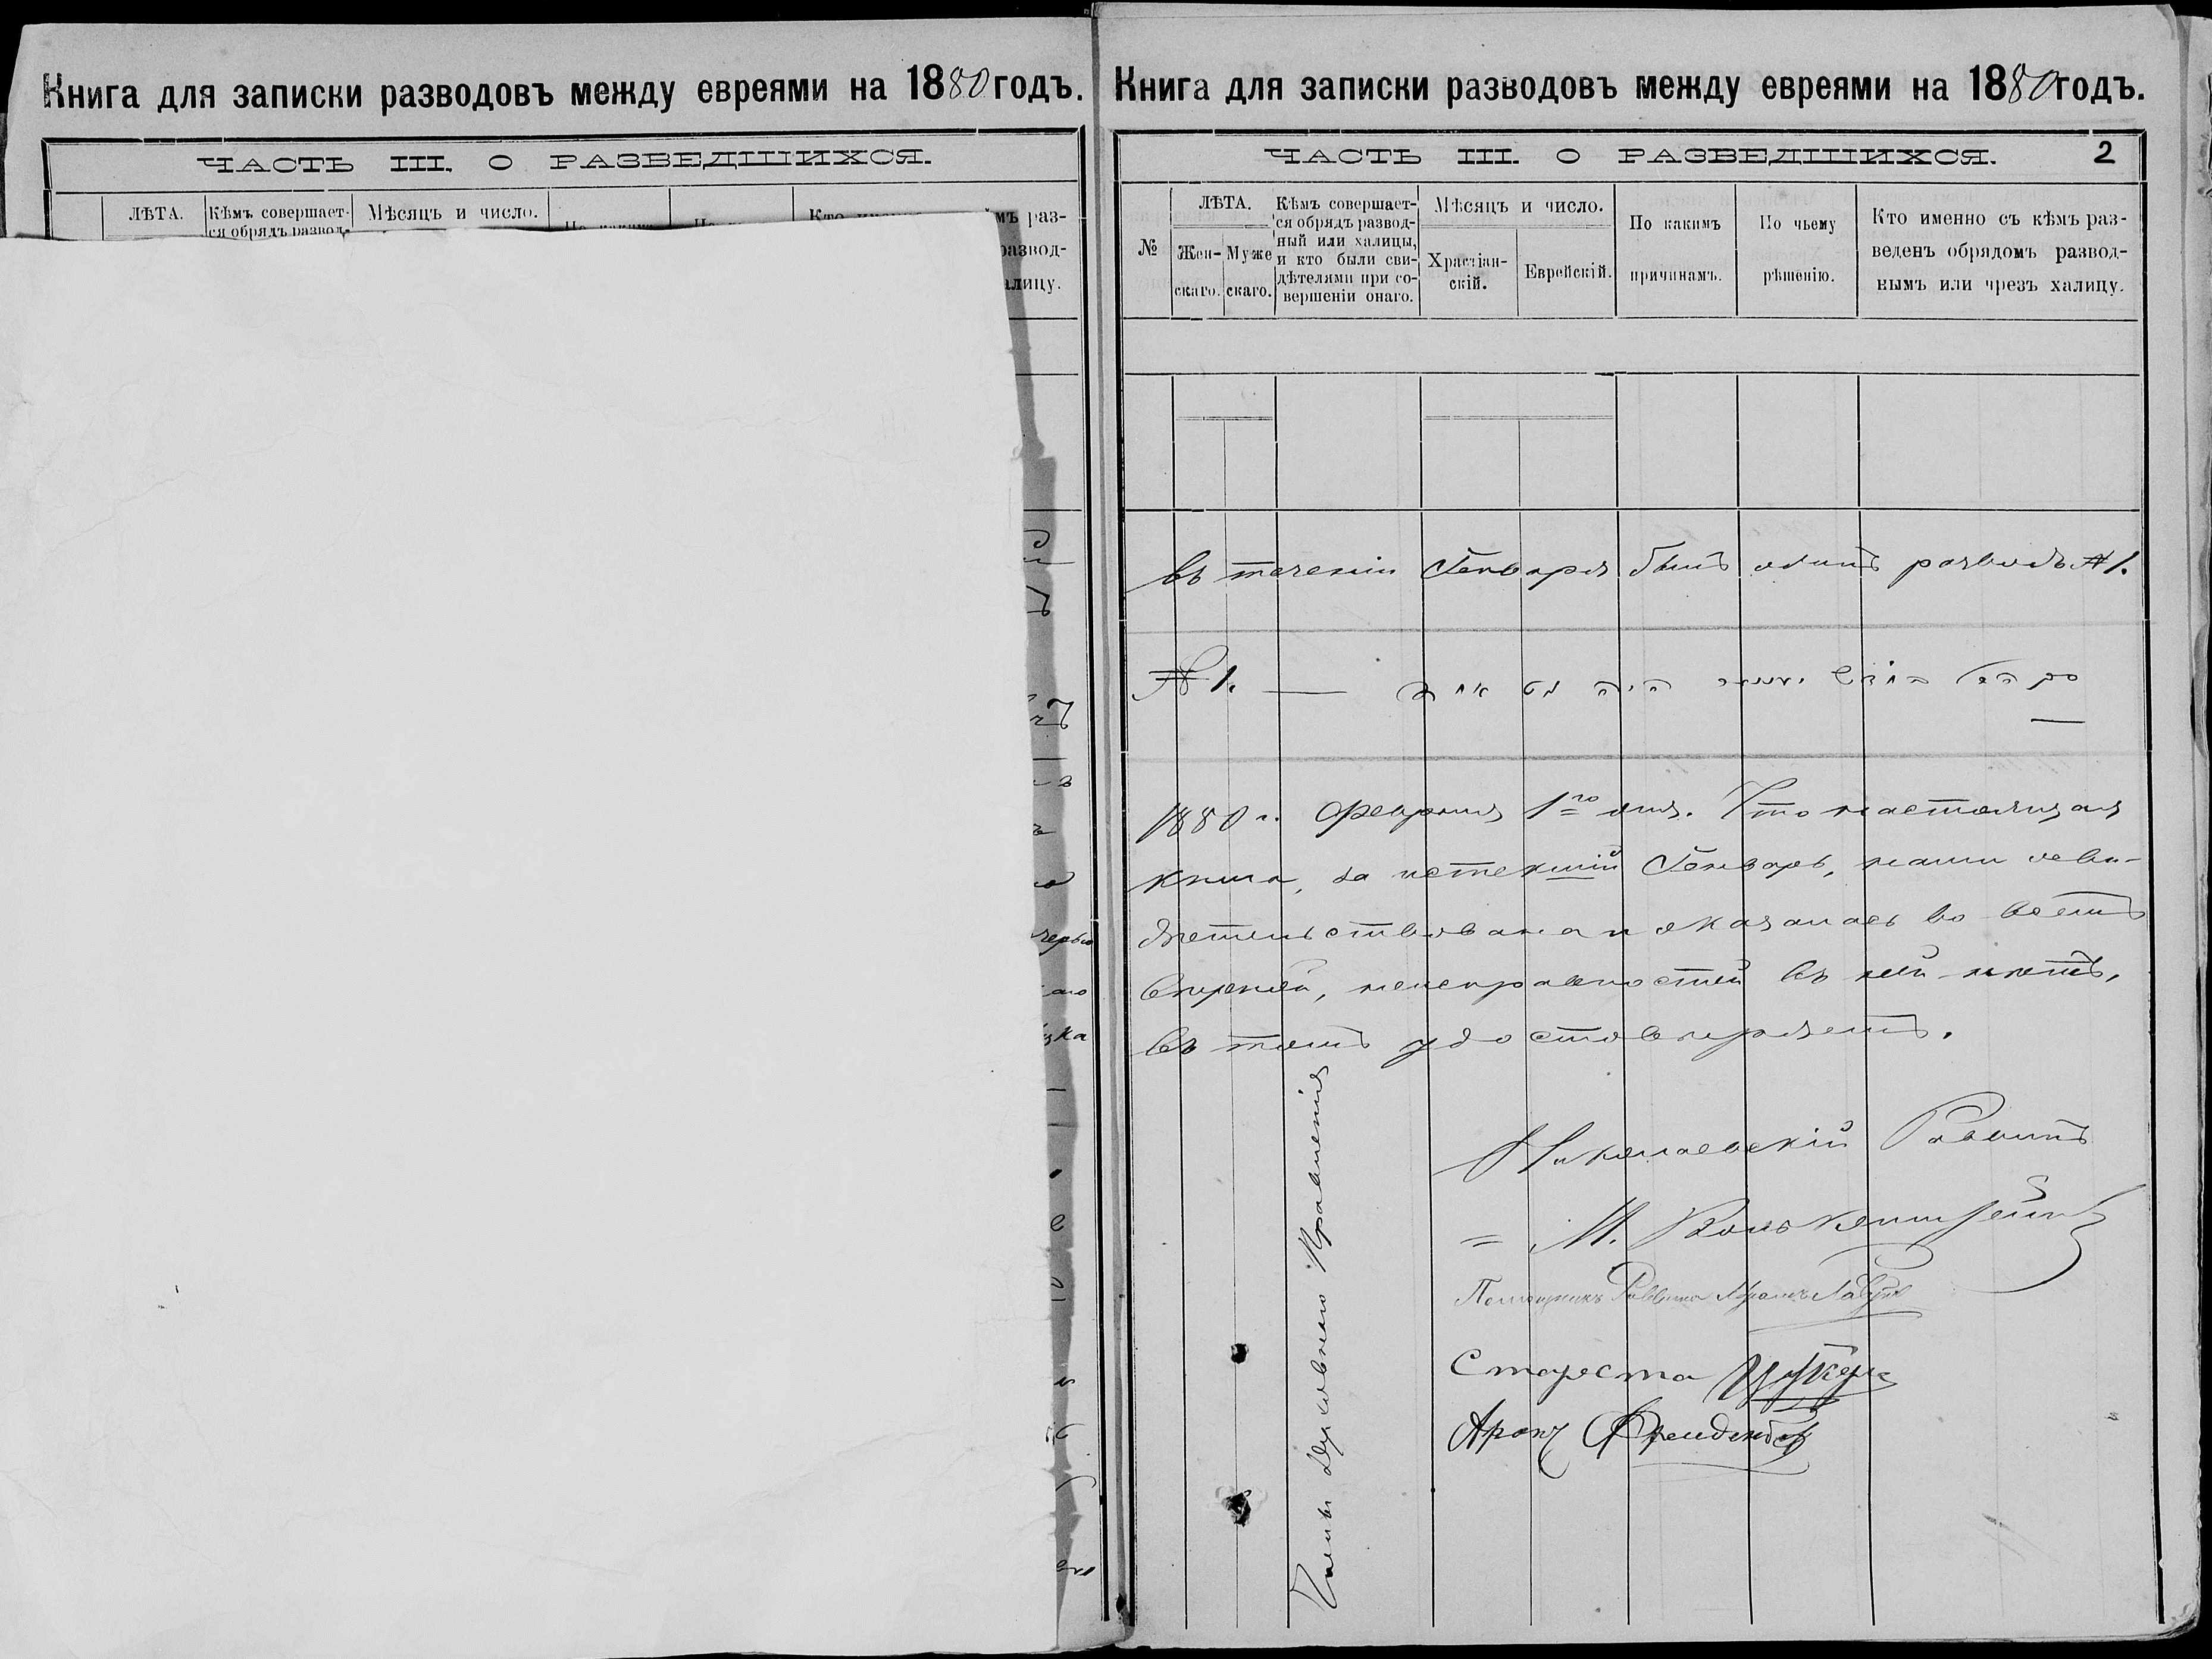 Книга для записки разводовъ между евреями на 1880 годъ.
ЧАСТЬ III. О РАЗВЕДШИХСЯ.
ЛѢТА.
Кѣмъ совершает-
ся обрядъ развод-
Мѣсяцъ и число.
мъ раз-
развод-
алицу.
Книга для записки разводовъ между евреями на 1880 годъ.
ЧАСТЬ III. О РАЗВЕДШИХСЯ.
2
№
ЛѢТА.
Жен-
скаго.
Муже
скаго.
Кѣмъ совершает-
ся обрядъ развод-
ный или халицы,
и кто были сви-
дѣтелями при со-
вершеніи онаго.
Мѣсяцъ и число.
Христіан-
скій.
Еврейскій.
По какимъ
причинамъ.
По чьему
рѣшенію.
Кто именно съ кѣмъ раз-
веденъ обрядомъ развод-
нымъ или чрезъ халицу.
въ теченіи Генваря былъ одинъ разводъ № 1.
№ 1.
1880 г. Февраля 1го дня. Что настоящая
книга, за истекшій Генварь, нами сви-
дѣтельствована и оказалась во всемъ
вѣрной, неисправностей въ ней нѣтъ,
въ томъ удостовѣряемъ.
Николаевскій Раввинъ
М.
Помощникъ Раввина
Староста Цукеръ
Аронъ
Члены Духовнаго Правленія